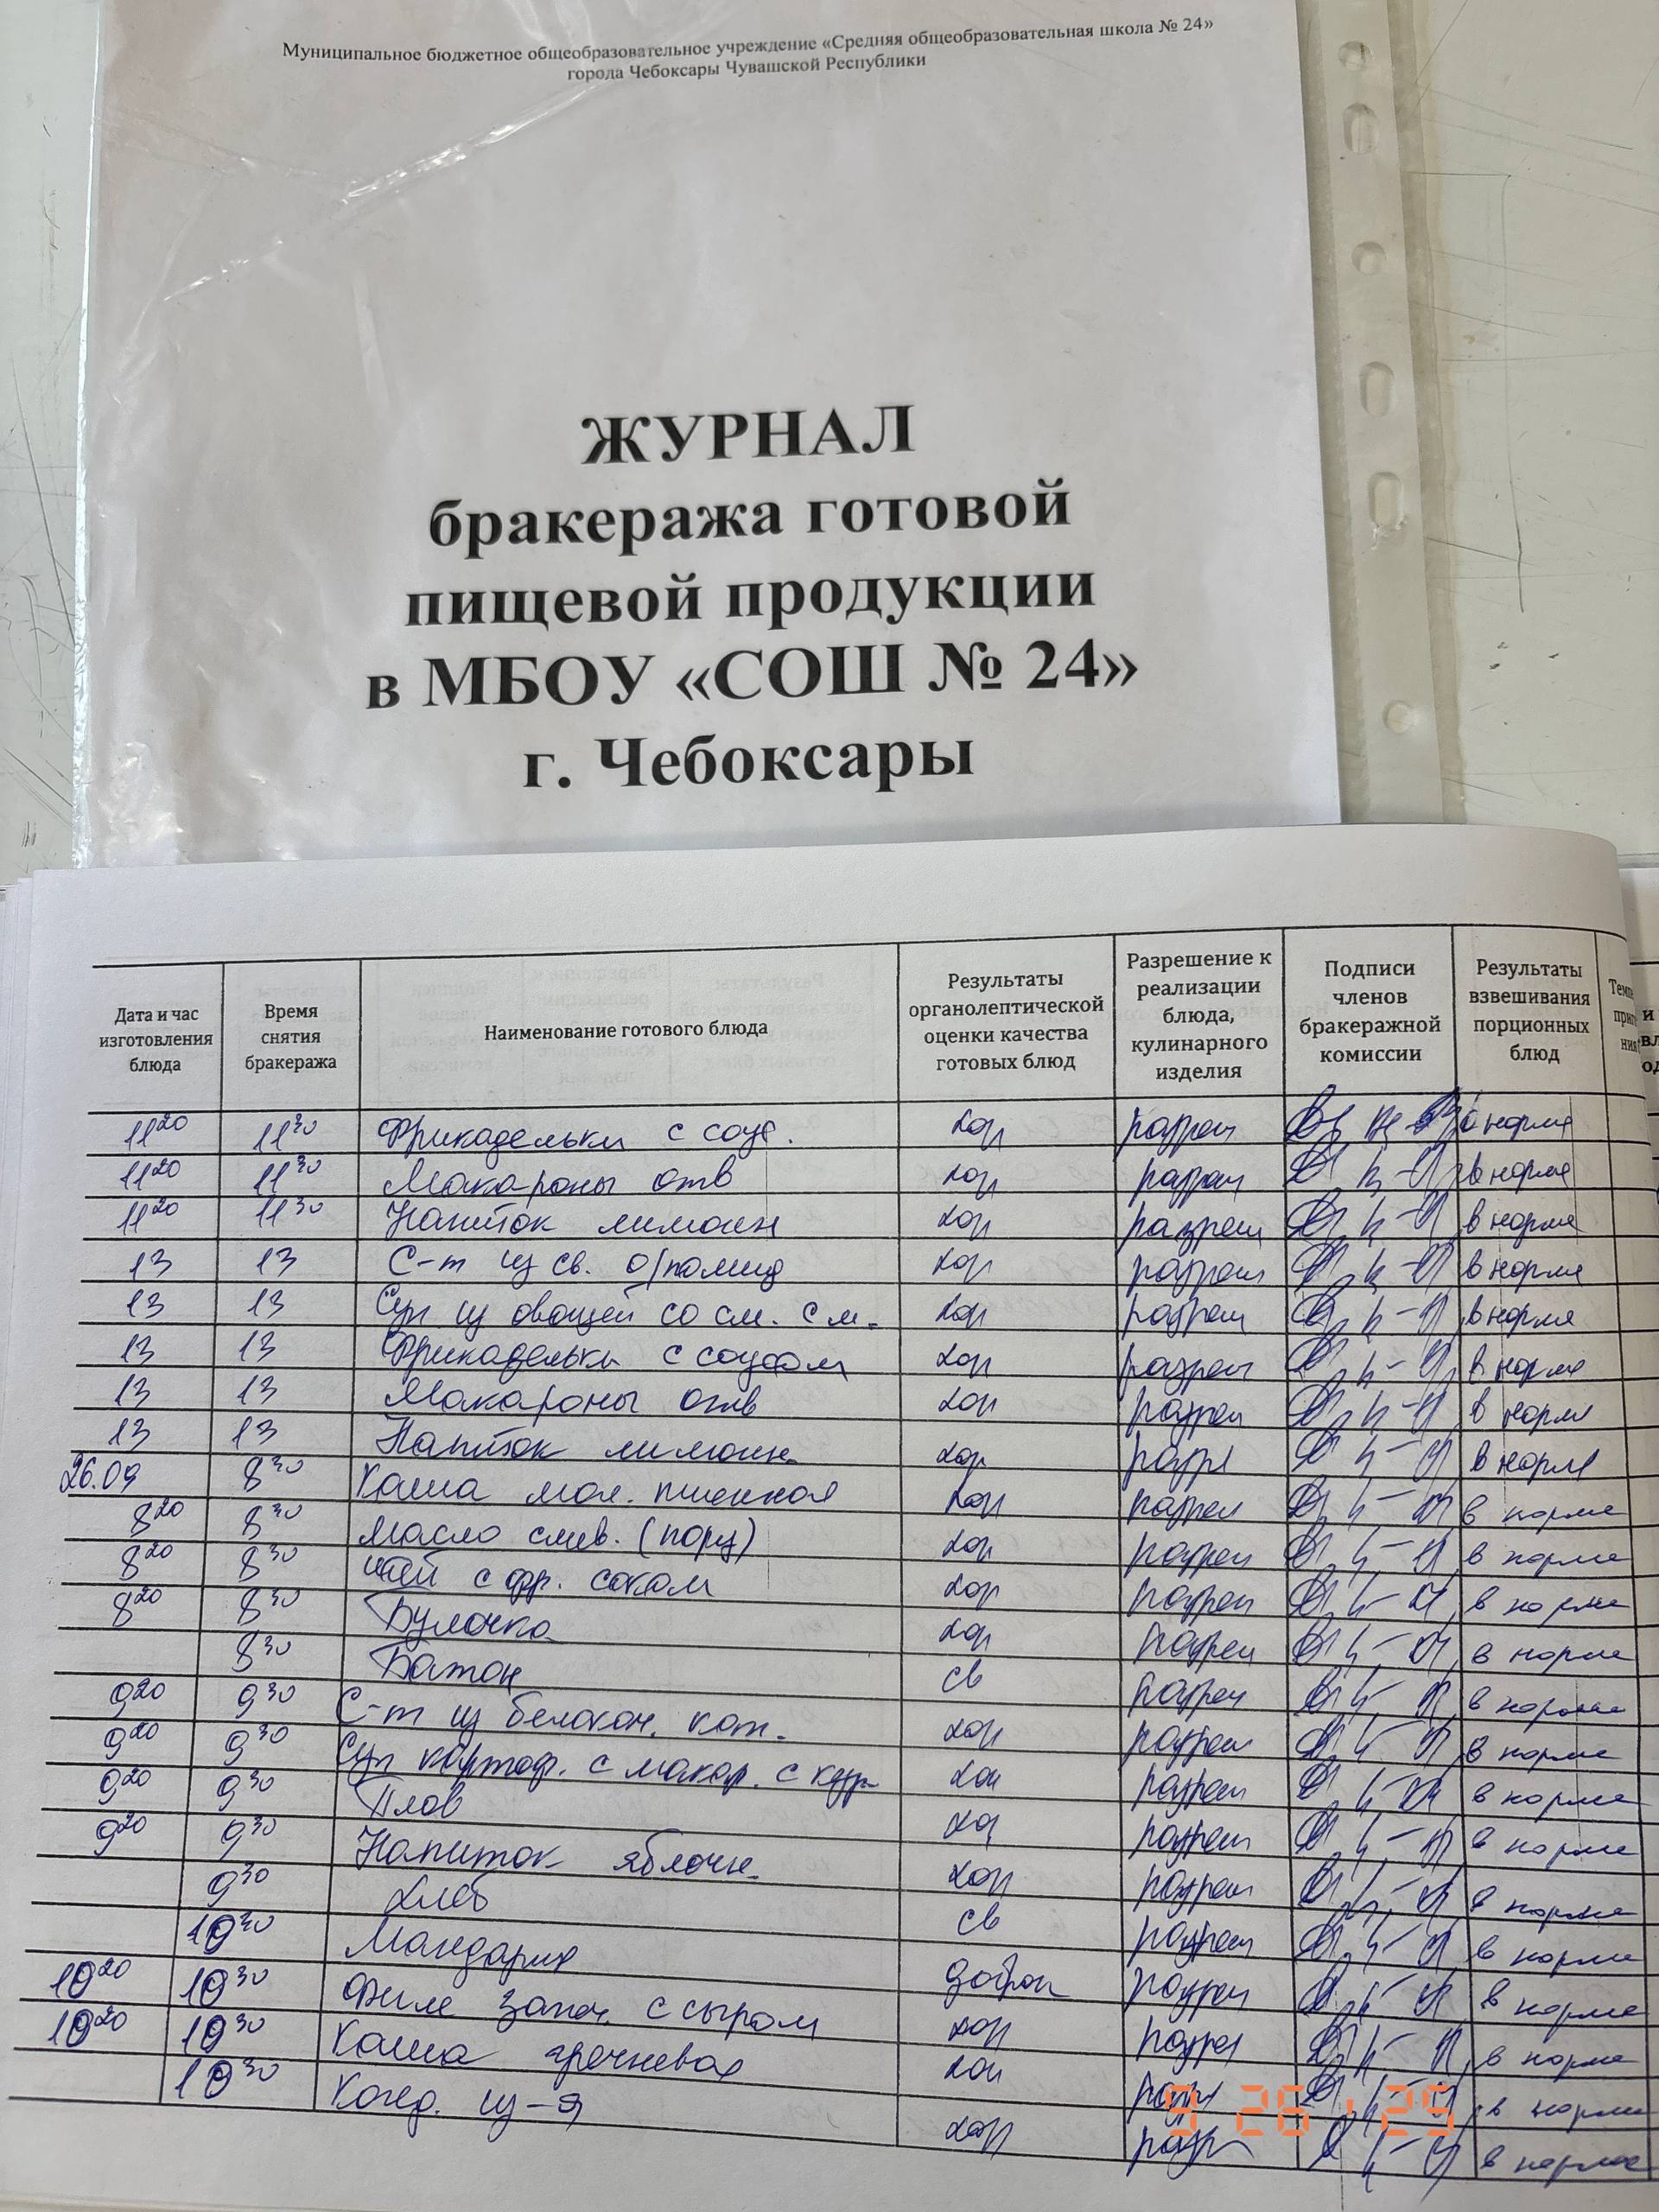 Муниципальное бюджетное общеобразовательное учреждение «Средняя общеобразовательная школа № 24»
города Чебоксары Чувашской Республики
ЖУРНАЛ
бракеража готовой
пищевой продукции
в МБОУ «СОШ № 24»
г. Чебоксары
Дата и час изготовления блюда Время снятия бракеража Наименование готового блюда Результаты органолептической оценки качества готовых блюд Разрешение к реализации блюда, кулинарного изделия Подписи членов бракеражной комиссии Результаты взвешивания порционных блюд
11 20 11 30 Фрикадельки с соус. хор разреш в норме
11 20 11 30 Макароны отв хор разреш в норме
11 20 11 30 Напиток лимонн хор разреш в норме
13 13 С-т из св. о/помид хор разреш в норме
13 13 Суп из овощей со см. с м. хор разреш в норме
13 13 Фрикадельки с соусом хор разреш в норме
13 13 Макароны отв хор разреш в норм
13 13 Напиток лимонн. хор разр в норм
26.09 8 30 Каша мол. пшенная хор разреш в норме
8 20 8 30 Масло слив. (порц) хор разреш в норме
8 20 8 30 Чай с фр. соком хор разреш в норме
8 20 8 30 Булочка хор разреш в норме
8 30 Батон св разреш в норме
9 20 9 30 С-т из белокоч. кап. хор разреш в норме
9 20 9 30 Суп картоф. с макар. с кур. хор разреш в норме
9 20 9 30 Плов хор разреш в норме
9 20 9 30 Напиток яблочн. хор разреш в норме
9 30 Хлеб св разреш в норме
10 30 Мандарин разреш в норме
10 20 10 30 Филе запеч. с сыром хор разреш в норме
10 20 10 30 Каша гречневая хор разр в норме
10 30 Конд. из-я хор разр в норме
9 26 '25